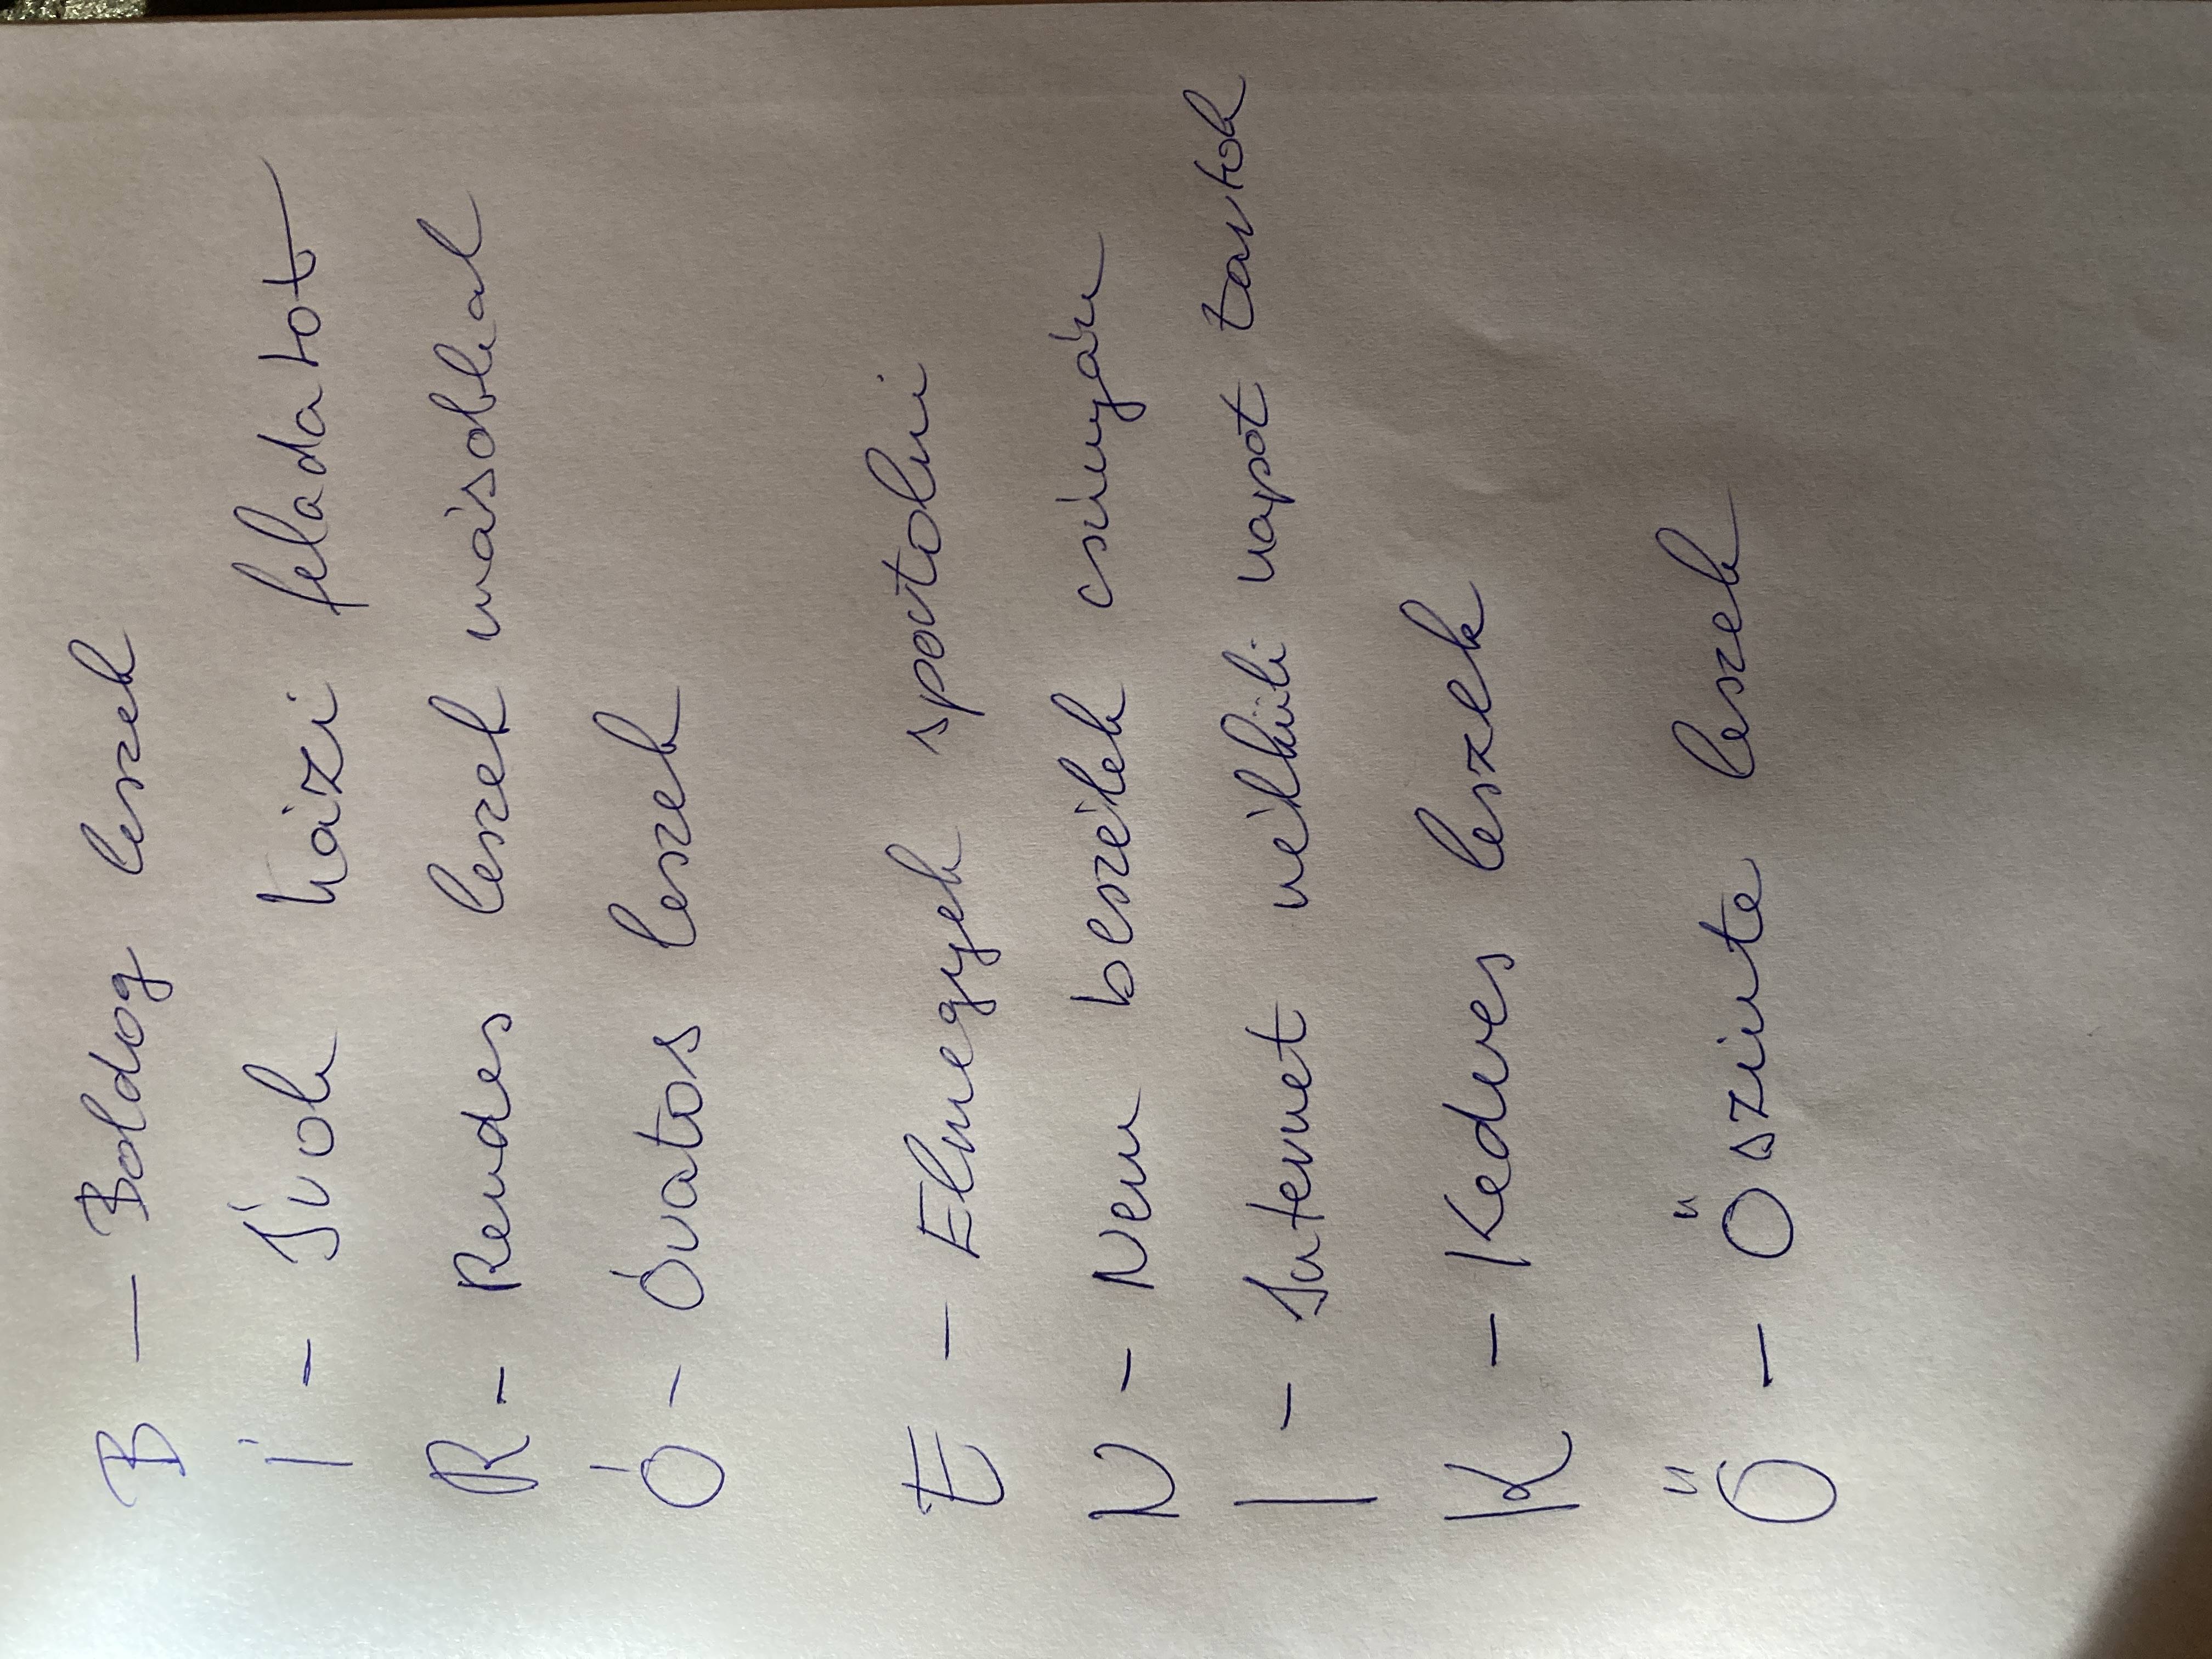 B — Boldog leszek
Í - Írok házi feladatot
R - Rendes leszek másokkal
Ó - Óvatos leszek
E - Elmegyek sportolni
N - Nem beszélek csúnyán
I - Internet nélküli napot tartok
K - Kedves leszek
Ő - Őszinte leszek